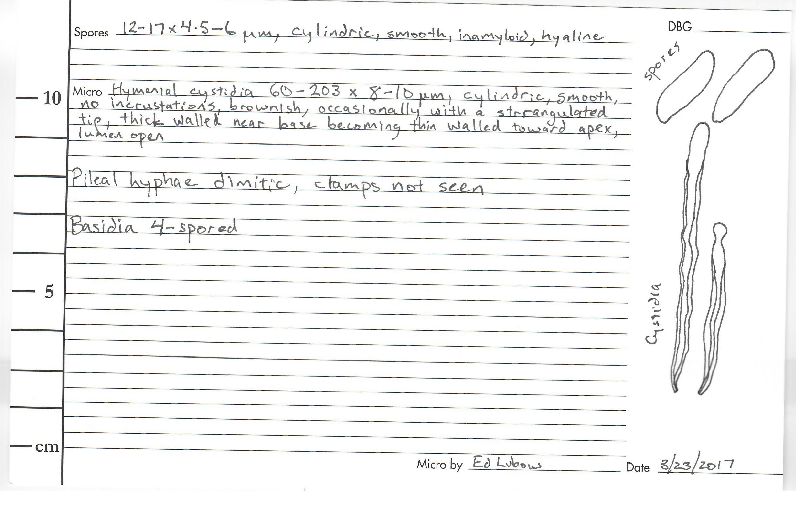 Spores 12-17 x 4.5-6 µm, cylindric, smooth, inamyloid, hyaline
DBG
spores
Micro Hymenial cystidia 60-203 x 8-10 µm, cylindric, smooth,
10
no incrustations, brownish, occasionally with a strangulated
tip, thick walled near base becoming thin walled toward apex,
lumen open
Pileal hyphae dimitic, clamps not seen
Basidia 4-spored
5
Cystidia
cm
Micro by Ed Lubows
Date 3/23/2017